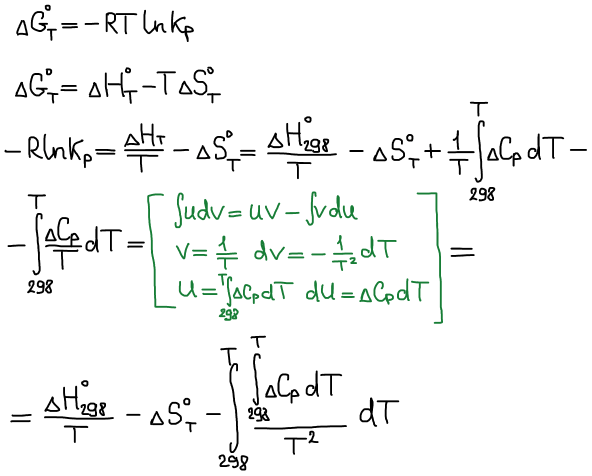 ΔG°_T = -RT lnK_p
ΔG°_T = ΔH°_T - TΔS°_T
-RlnK_p = ΔH_T/T - ΔS°_T = ΔH°_298/T - ΔS°_T + 1/T ∫_298^T ΔC_p dT -
- ∫_298^T ΔC_p/T dT = [ ∫udv = uv - ∫vdu
v = 1/T dv = - 1/T² dT
u = ∫_298^T ΔC_p dT du = ΔC_p dT ] =
= ΔH°_298/T - ΔS°_T - ∫_298^T (∫_298^T ΔC_p dT)/T² dT